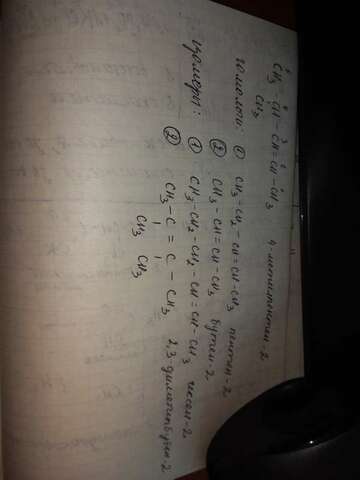 CH₃ - CH - CH = CH - CH₃ 4-метилпентен-2
CH₃
гомологи: ① CH₃ - CH₂ - CH = CH - CH₃ пентен-2
② CH₃ - CH = CH - CH₃ бутен-2
изомеры: ① CH₃ - CH₂ - CH₂ - CH = CH - CH₃ гексен-2
② CH₃ - C = C - CH₃ 2,3-диметилбутен-2
CH₃ CH₃